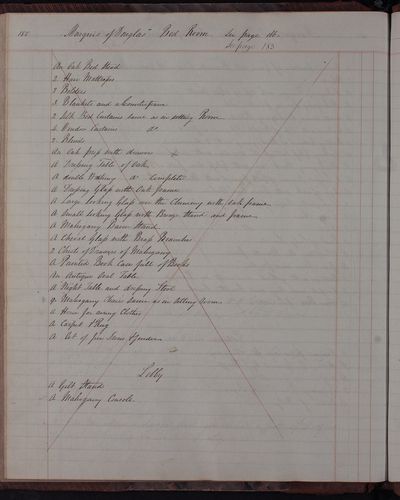 182 Marquis of Douglas' Bed Room See page
See page 183
An Oak Bed Stead
2 Hair Mattrasses
3 Bolsters
3 Blankets and a Counterpane
2 Silk Bed Curtains same as in sitting Room
4 Window Curtains do
2 Blinds
An Oak press with drawers
A Dressing Table of Oak
A double Washing do Complete
A Dressing Glass with Oak frame
A Large looking Glass over the Chimney with Oak frame
A Small looking Glass with Bronze Stand and frame
A Mahogany Bason Stand
A Cheval Glass with Brass Branches
2 Chests of Drawers of Mahogany
A Painted Book Case full of Books
An Antique Oval Table
A Night Table and dressing Stool
9 Mahogany Chairs same as in sitting room
A Horse for airing Clothes
A Carpet & Rug
A Set of fire Irons & fender
Lobby
A Gilt Stand
A Mahogany Console